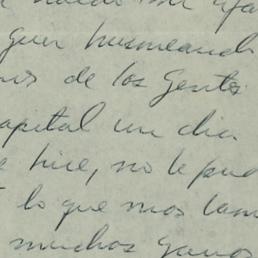 guer husmeando
de los gentes
capital un dia
hice, no le pud
lo que nos lam
muchos ganos